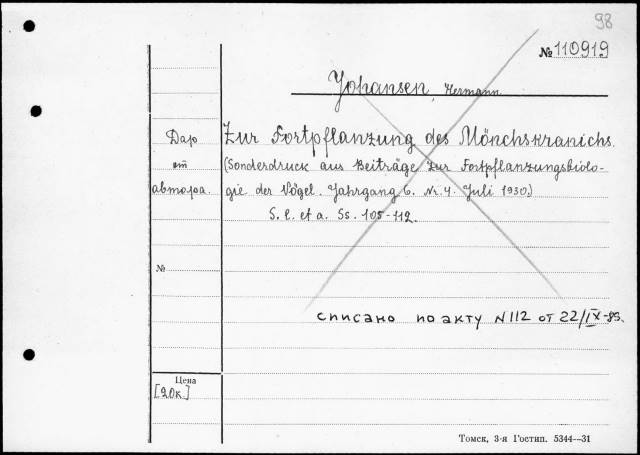 98
№ 110919
Johansen, Hermann
Дар
от
автора.
Zur Fortpflanzung des Mönchskranichs.
(Sonderdruck aus Beiträge zur Fortpflanzungsbiolo-
gie der Vögel. Jahrgang 6. Nr. 4. Juli 1930.)
S. l. et a. Ss. 105-112.
№
списано по акту N 112 от 22/IX-83.
Цена
[20к]
Томск, 3-я Гостип. 5344—31